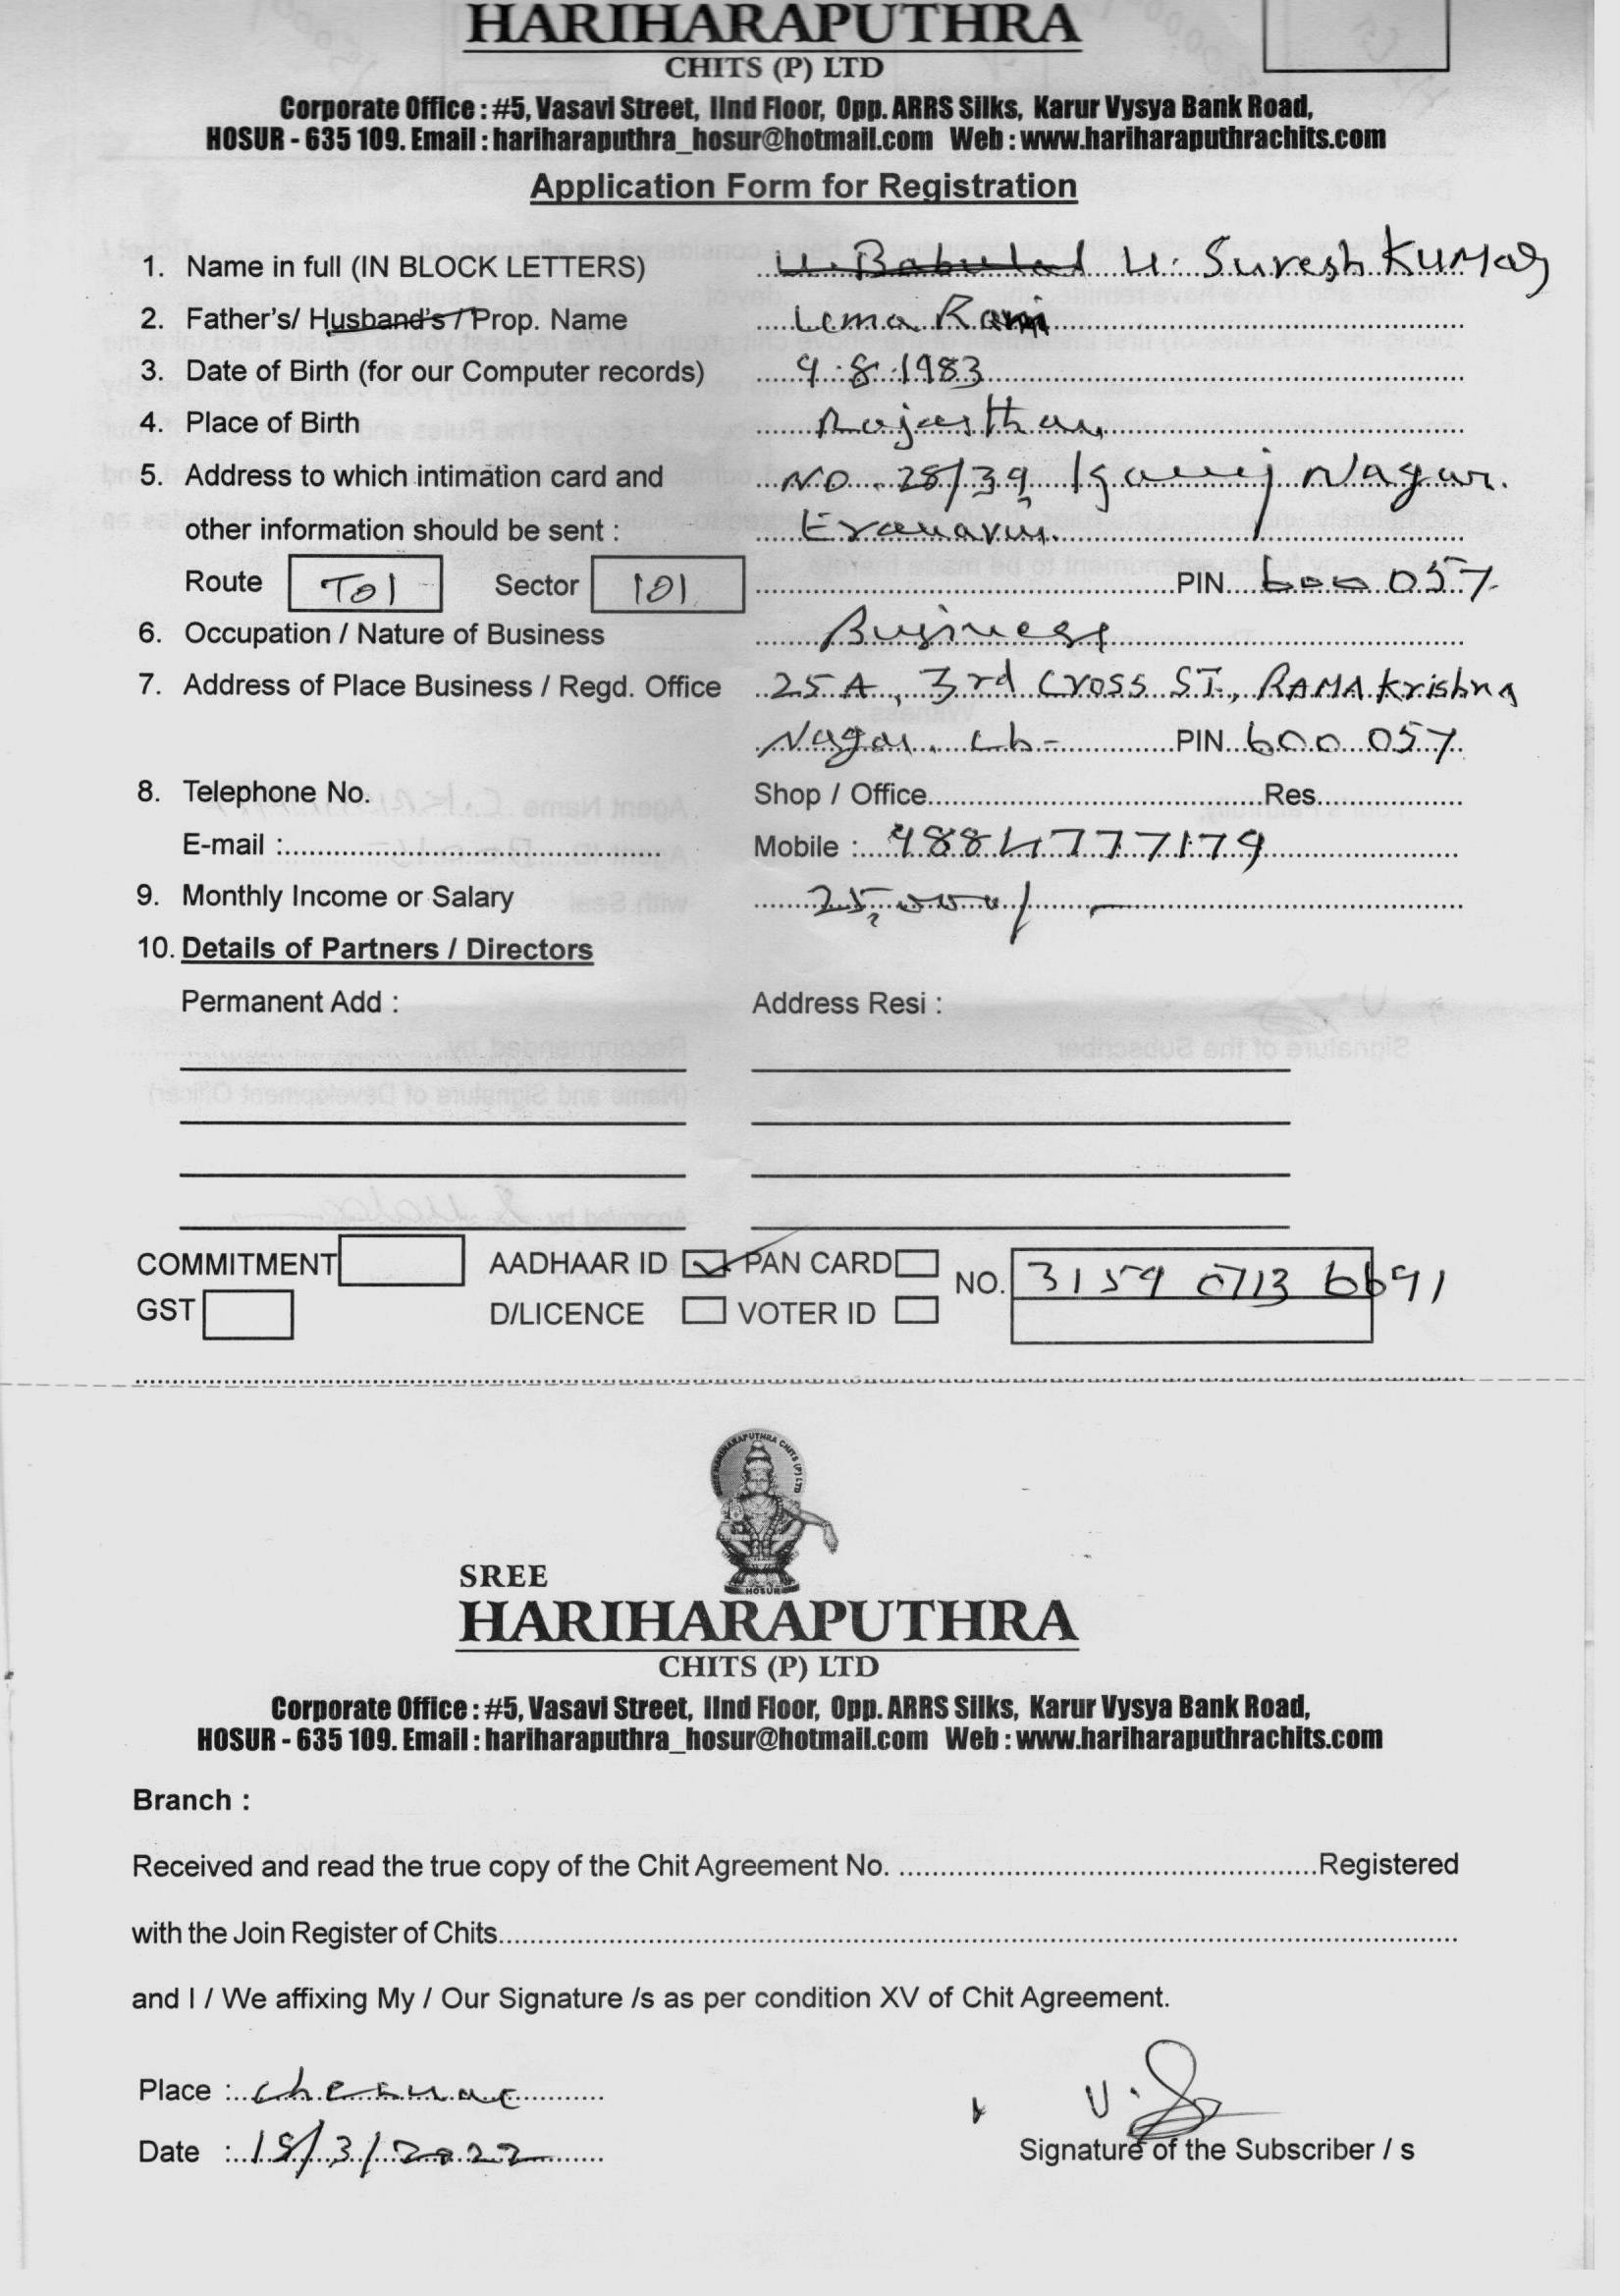 HARIHARAPUTHRA
CHITS (P) LTD
Corporate Office : #5, Vasavi Street, IInd Floor, Opp. ARRS Silks, Karur Vysya Bank Road,
HOSUR - 635 109. Email : hariharaputhra_hosur@hotmail.com Web : www.hariharaputhrachits.com
Application Form for Registration
1. Name in full (IN BLOCK LETTERS) U. Babulal U. Suresh KUMAR
2. Father's/ Husband's / Prop. Name Uma Ram
3. Date of Birth (for our Computer records) 9.8.1983
4. Place of Birth Rajasthan
5. Address to which intimation card and NO. 28/39, Nagar.
other information should be sent :
Route T01 Sector 101 PIN 600 057
6. Occupation / Nature of Business Business
7. Address of Place Business / Regd. Office 25 A, 3rd Cross ST., RAMA Krishna
Nagar. ch- PIN 600 057
8. Telephone No. Shop / Office Res
E-mail : Mobile : 9884777179
9. Monthly Income or Salary 25,000/-
10. Details of Partners / Directors
Permanent Add : Address Resi :
COMMITMENT AADHAAR ID PAN CARD NO. 3159 0713 6691
GST D/LICENCE VOTER ID
SREE HARIHARAPUTHRA CHITS (P) LTD
HOSUR
SREE
HARIHARAPUTHRA
CHITS (P) LTD
Corporate Office : #5, Vasavi Street, IInd Floor, Opp. ARRS Silks, Karur Vysya Bank Road,
HOSUR - 635 109. Email : hariharaputhra_hosur@hotmail.com Web : www.hariharaputhrachits.com
Branch :
Received and read the true copy of the Chit Agreement No. Registered
with the Join Register of Chits
and I / We affixing My / Our Signature /s as per condition XV of Chit Agreement.
Place : chennai
Date : 15/3/2022
Signature of the Subscriber / s